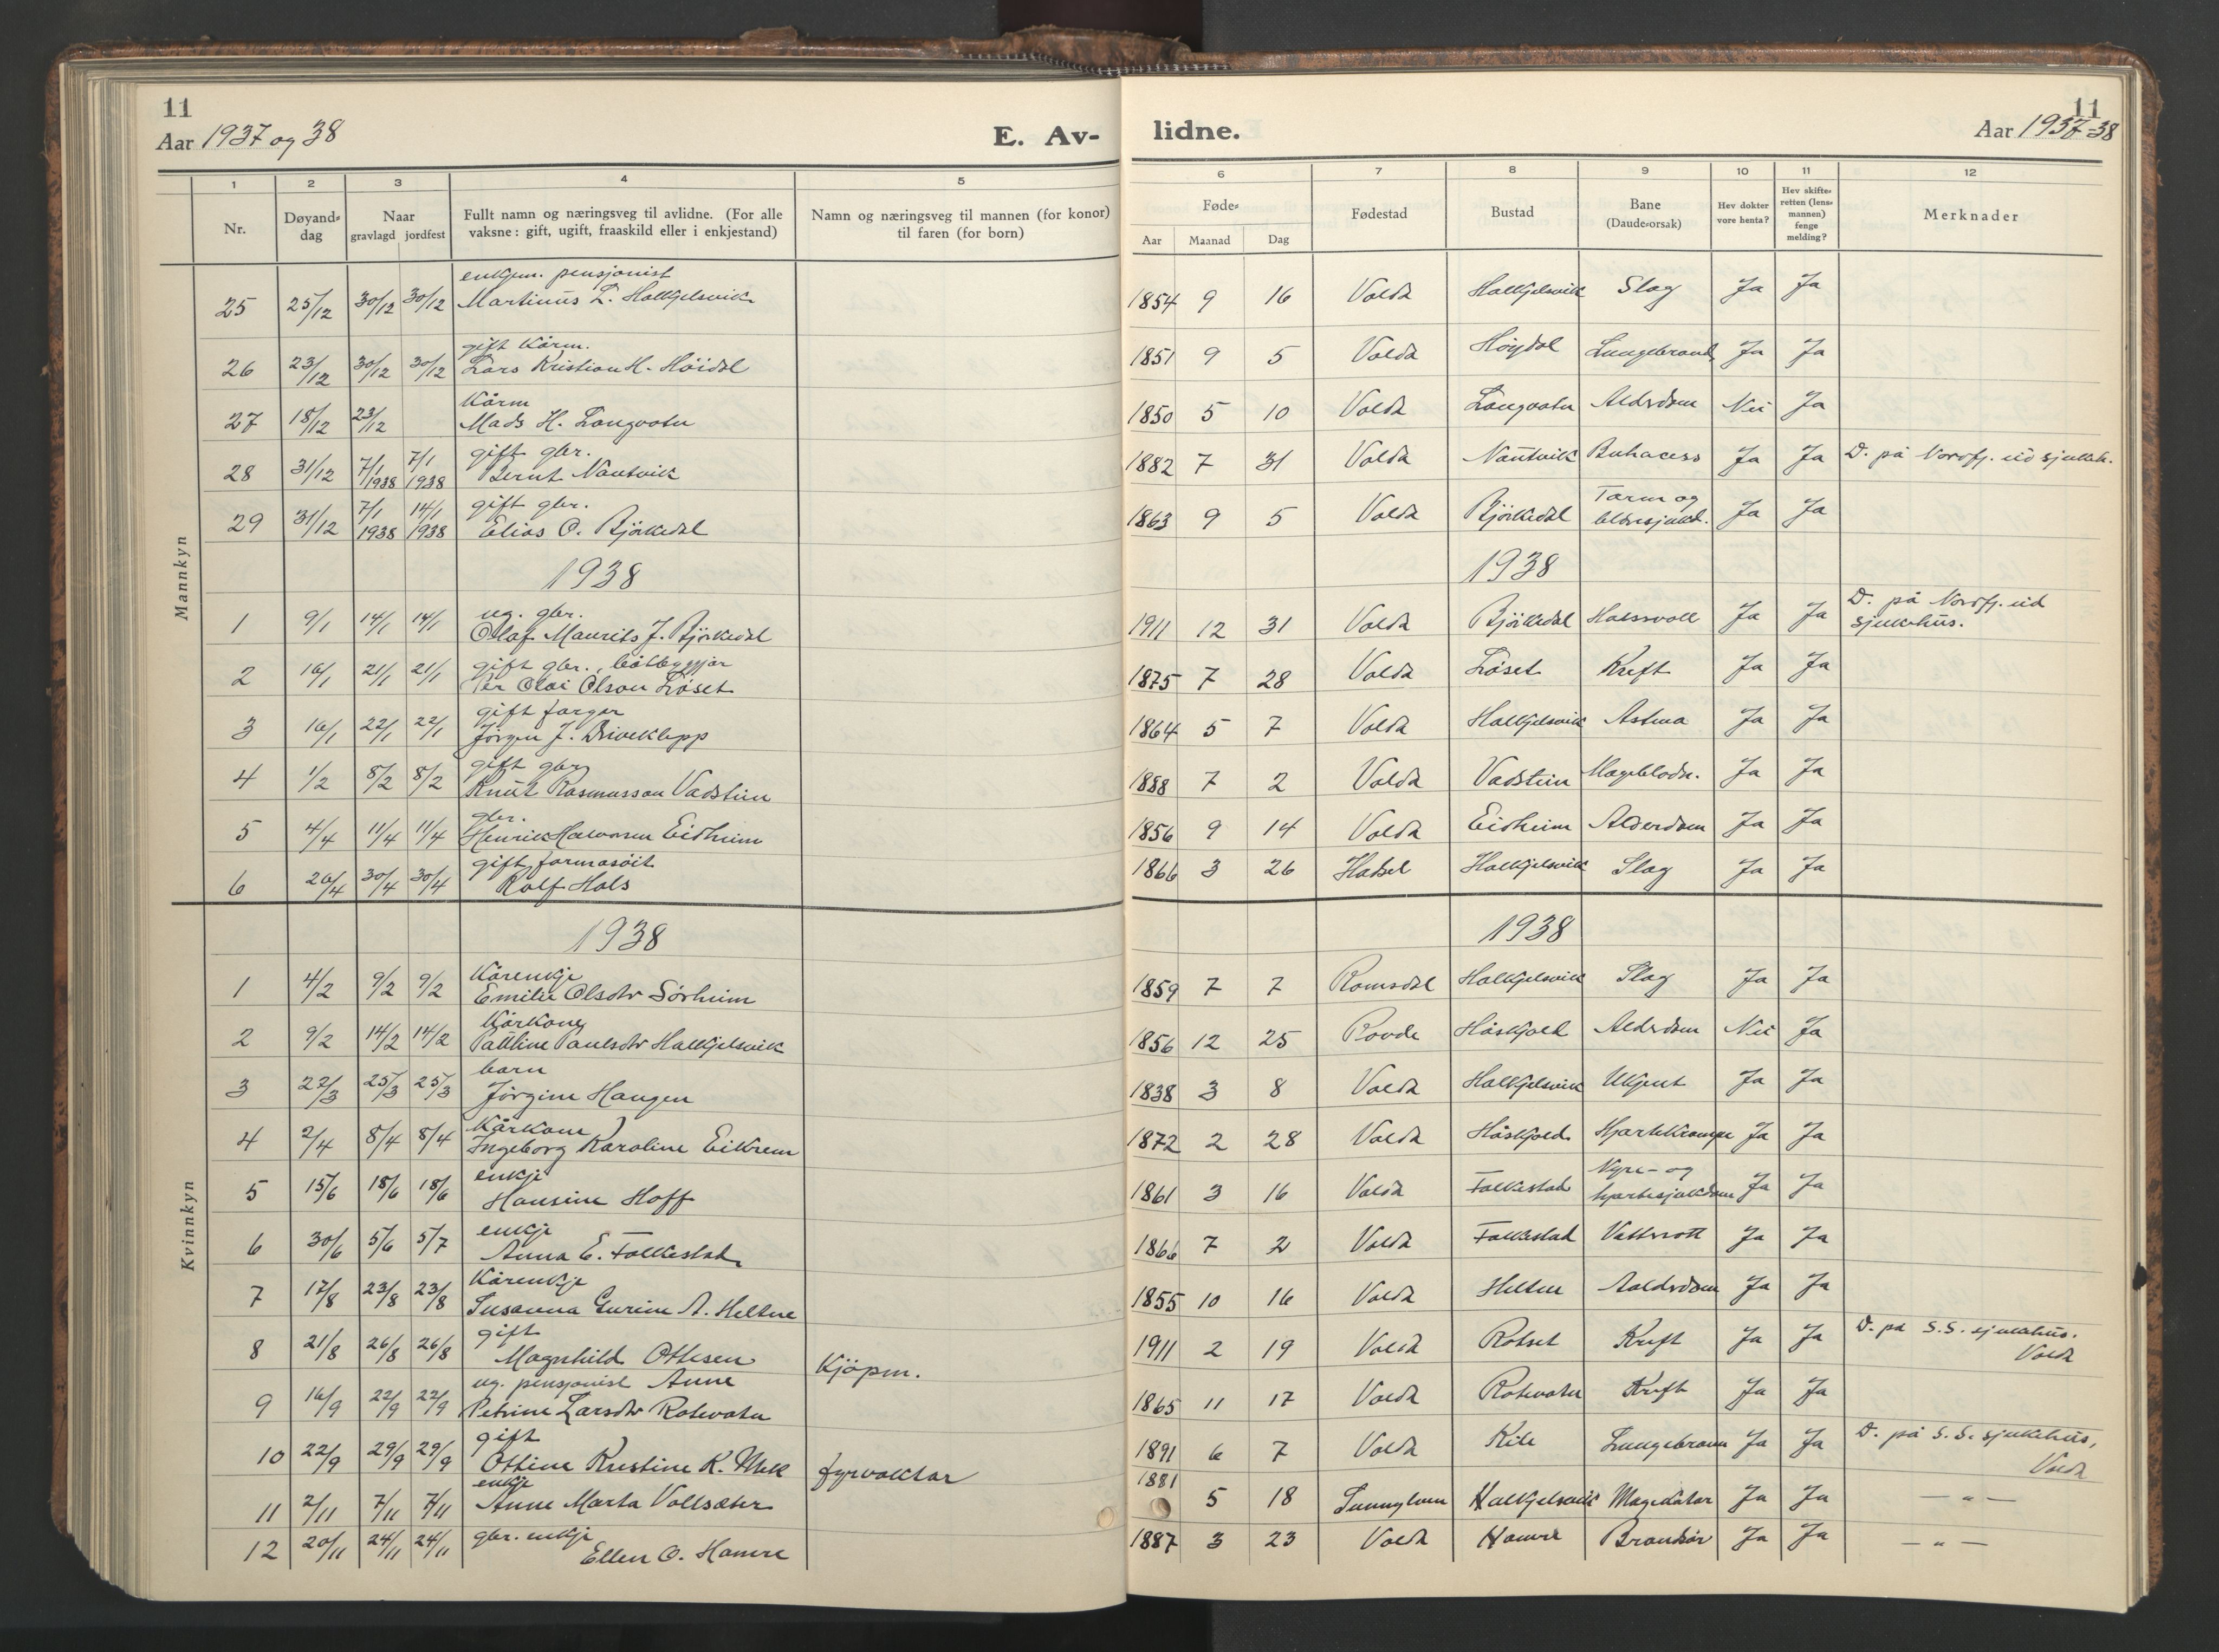 11
Aar 1937 og 38
E. Av-
lidne.
11
Aar 1937-38
1 2 3 4 5 6 7 8 9 10 11 12
Nr.
Døyand-
dag
Naar
gravlagd jordfest
Fullt namn og næringsveg til avlidne. (For alle
vaksne: gift, ugift, fraaskild eller i enkjestand)
Namn og næringsveg til mannen (for konor)
til faren (for born)
Føde-
Aar Maanad Dag
Fødestad
Bustad
Bane
(Daude-orsak)
Hev dokter
vore henta?
Hev skifte-
retten (lens-
mannen)
fenge
melding?
Merknader
Mannkyn
enkjem. pensjonist
25 25/12 30/12 30/12 Martinus L. Halkjelsvik 1854 9 16 Volda Halkjelsvik Slag Ja Ja
gift kårm.
26 23/12 30/12 30/12 Lars Kristian H. Höidal 1851 9 5 Volda Höydal Lungebrand Ja Ja
Kårm
27 18/12 23/12 Mads H. Langvatn 1850 5 10 Volda Langvatn Aldrdom Nei Ja
gift gbr.
28 31/12 7/1 1938 7/1 1938 Bernt Nautvik 1882 7 31 Volda Nautvik Ja Ja D. på Nordfj.eid sjukeh.
gift gbr. Tarm og
29 31/12 7/1 1938 14/1 1938 Elias O. Björkedal 1863 9 5 Volda Björkedal Ja Ja
1938 1938
ug. gbr. D. på Nordfj.eid
1 9/1 14/1 14/1 Olaf Maurits J. Björkedal 1911 12 31 Volda Björkedal Halssvoll Ja Ja sjukehus.
gift gbr., båtbyggjar
2 16/1 21/1 21/1 Per Olai Olson Löset 1875 7 28 Volda Löset Kreft Ja Ja
gift farger
3 16/1 22/1 22/1 Jörgen J. Driveklepp 1864 5 7 Volda Halkjelsvik Astma Ja Ja
gift gbr
4 1/2 8/2 8/2 Knut Rasmusson Vadstein 1888 7 2 Volda Vadstein Mageblödn. Ja Ja
gbr.
5 4/4 11/4 11/4 Henrik Halvorsen Eidheim 1856 9 14 Volda Eidheim Alderdom Ja Ja
gift farmasöit
6 26/4 30/4 30/4 Rolf Hals 1866 3 26 Hadsel Halkjelsvik Slag Ja Ja
Kvinnkyn
1938 1938
Kårenkje
1 4/2 9/2 9/2 Emilie Olsdtr Sörheim 1859 7 7 Romsdal Halkjelsvik Slag Ja Ja
Kårkone
2 9/2 14/2 14/2 Pauline Paulsdtr Halkjelsvik 1856 12 25 Rovde Håskjold Aldrdom Nei Ja
barn
3 22/3 25/3 25/3 Jörgine Haugen 1838 3 8 Volda Halkjelsvik Ukjent Ja Ja
Kårkone
4 2/4 8/4 8/4 Ingeborg Karoline Eikrem 1872 2 28 Volda Håskjold Hjartekrampe Ja Ja
enkje Nyre- og
5 15/6 18/6 18/6 Hansine Hoff 1861 3 16 Volda Folkestad hjartesjukdom Ja Ja
enkje
6 30/6 5/6 5/7 Anna E. Folkestad 1866 7 2 Volda Folkestad Vattersott Ja Ja
Kårenkje
7 17/8 23/8 23/8 Susanna Gurine A. Heltne 1855 10 16 Volda Heltne Aaldrdom Ja Ja
gift
8 21/8 26/8 26/8 Magnhild Ottesen Kjöpm. 1911 2 19 Volda Rotset Kreft Ja Ja D. på S.S. sjukehus.
Volda
ug. pensjonist Anne
9 16/9 22/9 22/9 Petrine Larsdtr Rotevatn 1865 11 17 Volda Rotevatn Kreft Ja Ja
gift
10 22/9 29/9 29/9 Ottine Kristine K. Mek fyrvaktar 1891 6 7 Volda Kile Lungebrann Ja Ja D. på S.S. sjukehus,
Volda
enkje
11 2/11 7/11 7/11 Anne Marta Vollsæter 1881 5 18 Sunnylven Halkjelsvik Magekatar Ja Ja — " —
gbr. enkje
12 20/11 24/11 24/11 Ellen O. Hamre 1887 3 23 Volda Hamre Brandsår Ja Ja — " —